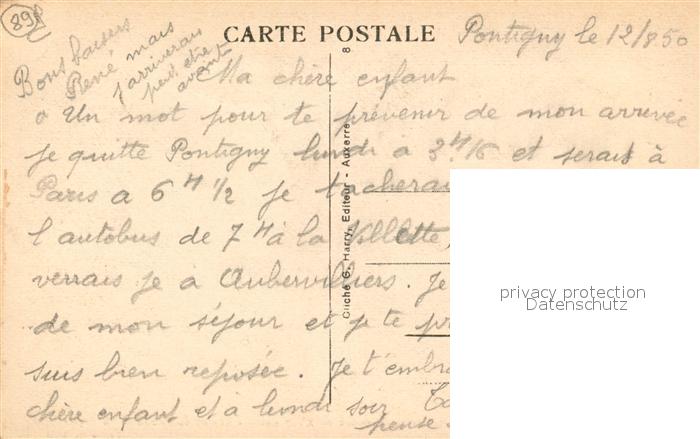 89
CARTE POSTALE
Pontigny le 12/8 50
Bons baisers
René mais
j'arriverai
peut être
avant
Ma chère enfant
Un mot pour te prévenir de mon arrivée
je quitte Pontigny lundi a 3 H 16 et serais à
Paris a 6 H 1/2 je tacherai
l'autobus de 7 H à la Villette,
verrais je à Aubervilliers. Je
de mon séjour et je te
suis bien reposée. Je t'embra
chère enfant et a lundi soir
pense
8
Cliché G. Harry, Editeur - Auxerre
privacy protection
Datenschutz